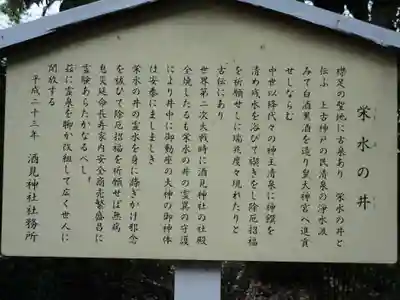 栄水の井
襟足の聖地に古泉あり 栄水の井と
伝ふ 上古神戸の民清泉の浄水汲
みて白酒黒酒を造り皇大神宮へ進貢
せしならむ
中世以降代々の神主清泉に神饌を
清め残水を浴びて禊ぎをし除厄招福
を祈願せしに瑞兆度々現れたりと
古伝にあり
世界第二次大戦時に酒見神社の社殿
全焼したるも栄水の井の霊異の守護
により井中に御動座の大神の御神体
は安泰にましましき
栄水の井の霊水を身に漑ぎかけ邪念
を祓ひて除厄招福を祈願せば無病
息災延命長寿家内安全商売繁盛呂に
霊験あらたかなるべし
茲に霊泉を聊か改組して広く世人に
開放する
平成二十三年 酒見神社社務所